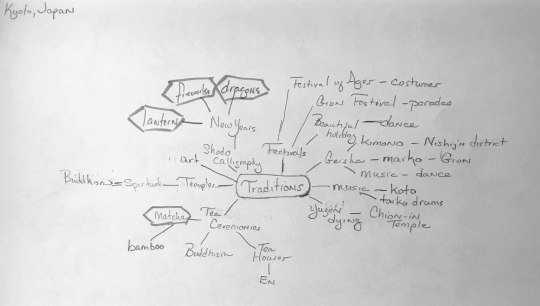 Kyoto, Japan
fireworks
dragons
lantern
New Years
Festival of Ages - costumes
Gion Festival - parades
Beautiful - dance
holiday
Festivals
Kimono - Nishijin district
Geisha - maiko - Gion
music - dance
Shodo
Calligraphy
art
Buddhism - Spiritual - Temples
Traditions
music - koto
taiko drums
Yuzen - Chion-in
dying
Temple
Matcha
Tea
Ceremonies
bamboo
Buddhism
Tea
Houses
EN